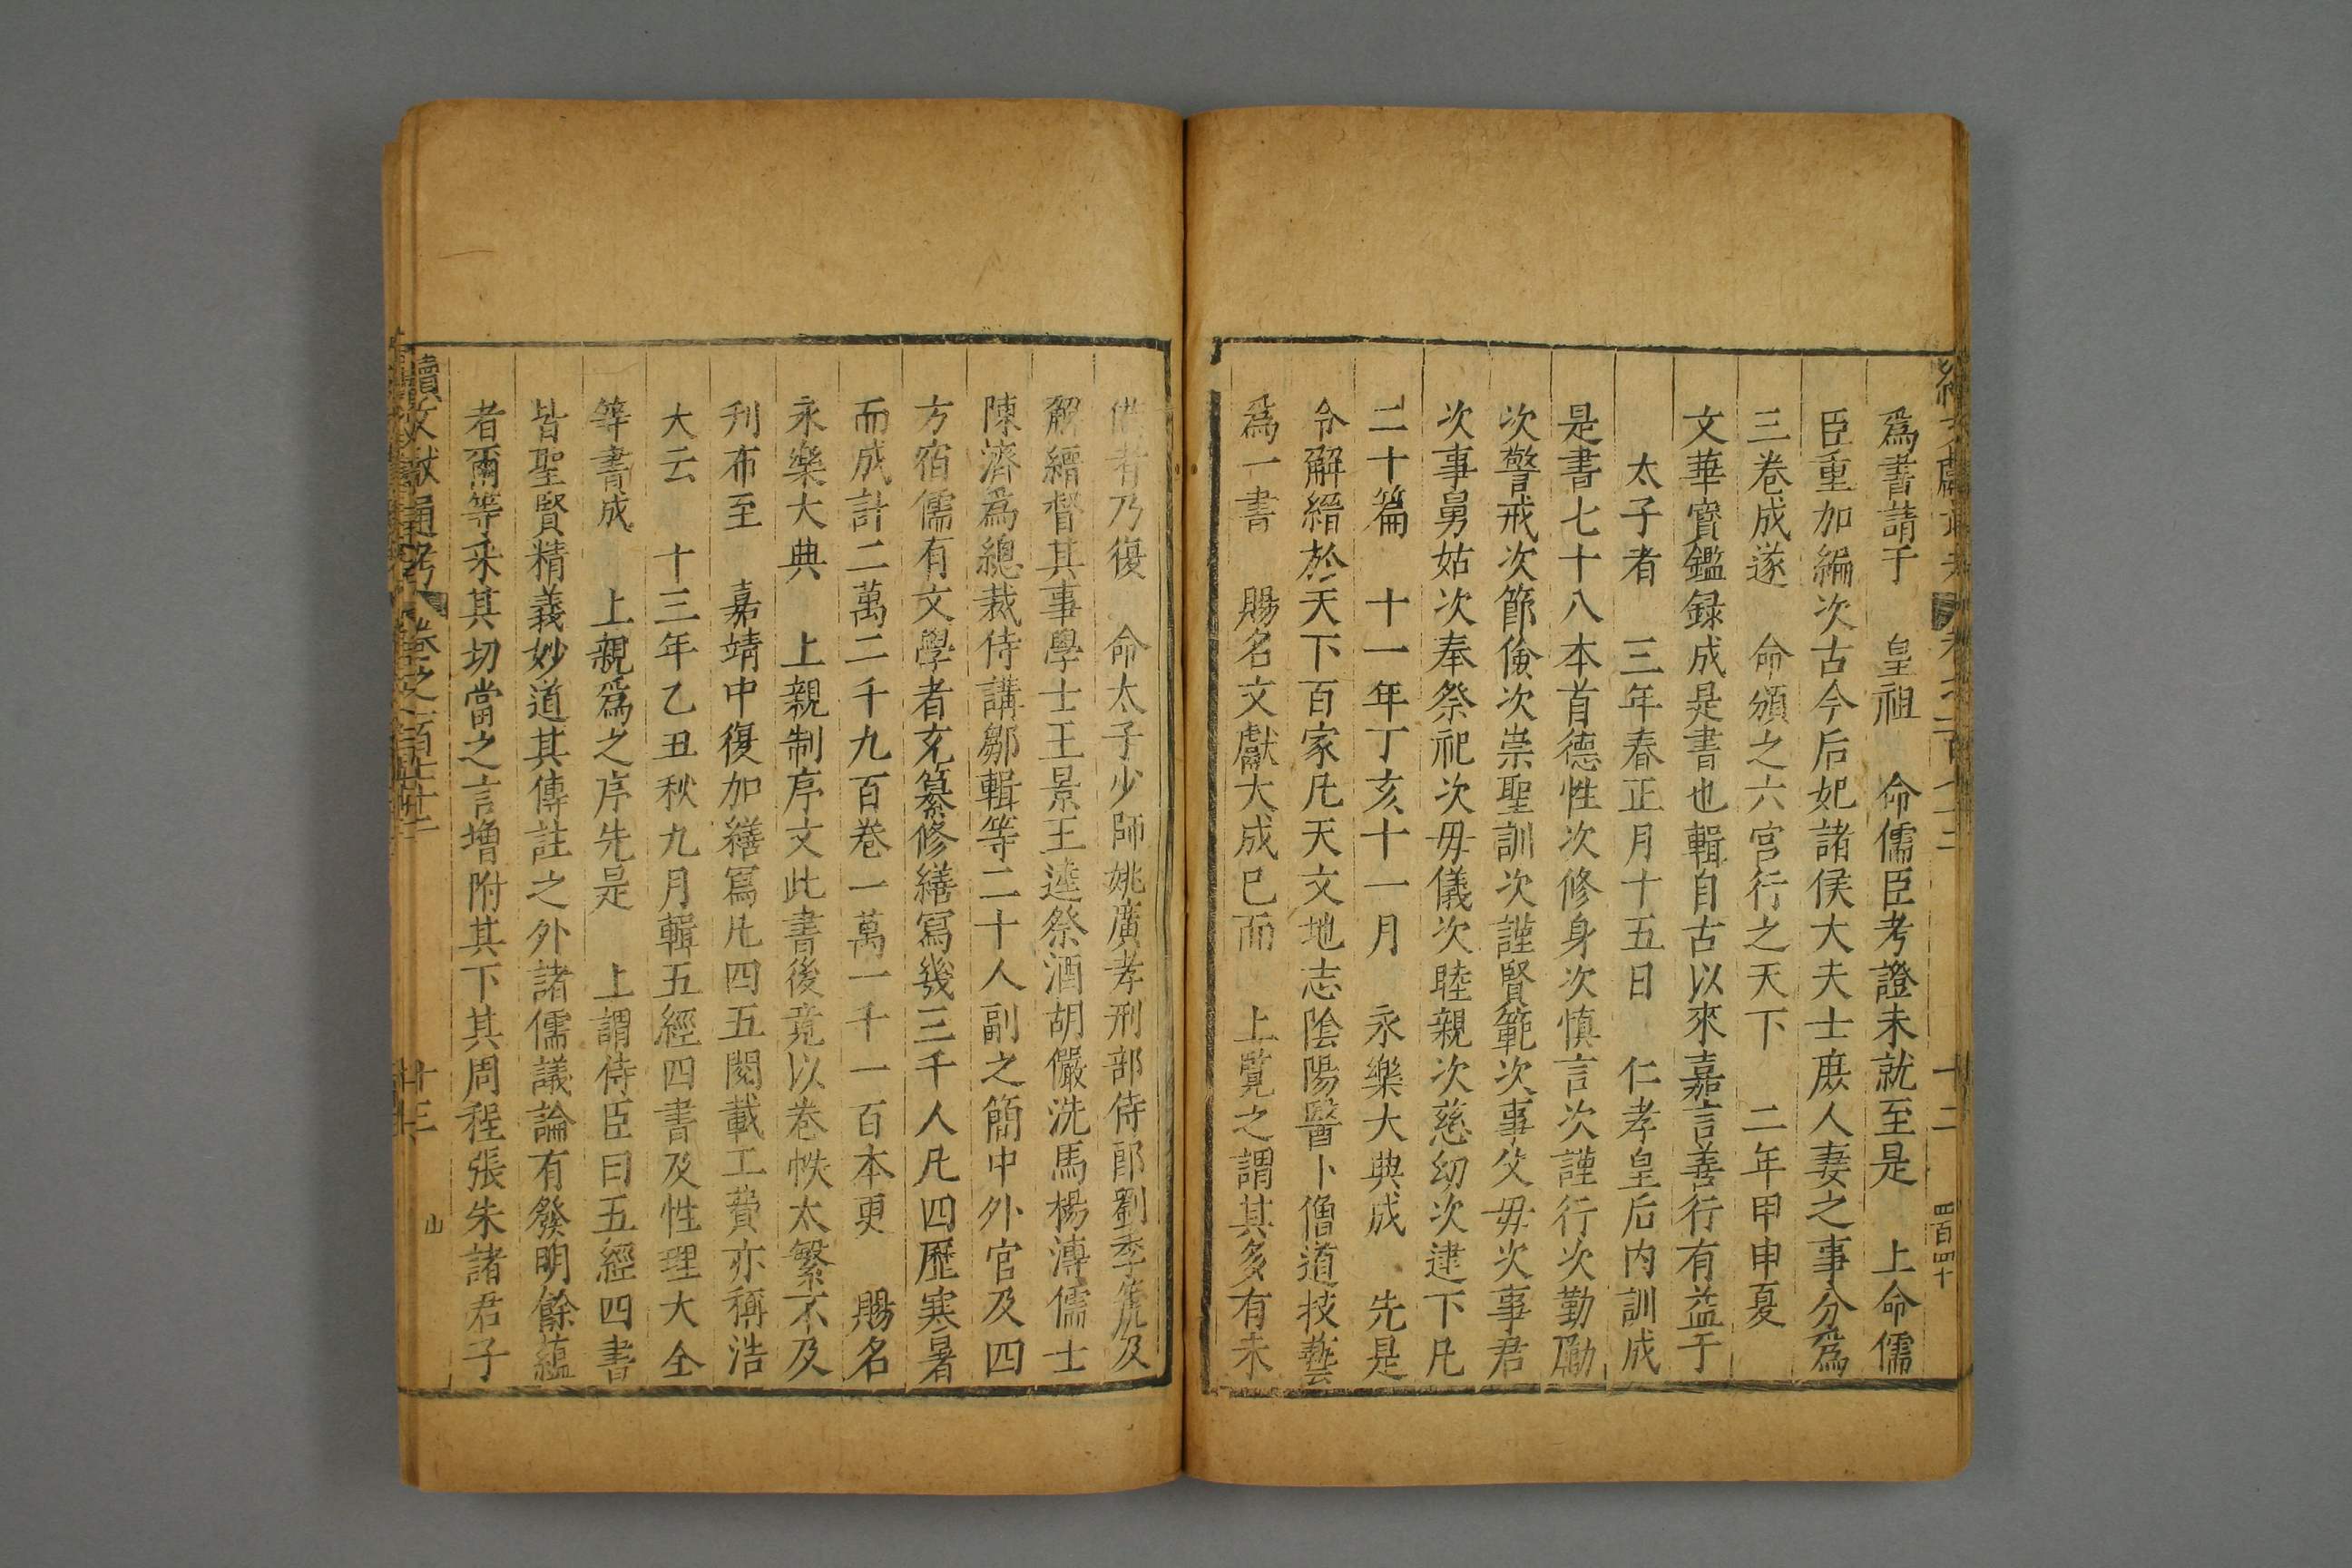 爲書請于 皇祖 命儒臣考證未就至是 上命儒
臣重加編次古今后妃諸侯大夫士庶人妻之事分爲
三卷成遂 命頒之六宮行之天下 二年甲申夏
文華寳鑑録成是書也輯自古以來嘉言善行有益于
太子者 三年春正月十五日 仁孝皇后内訓成
是書七十八本首德性次修身次慎言次謹行次勤勵
次警戒次節儉次崇聖訓次謹賢範次事父毋次事君
次事舅姑次奉祭祀次毋儀次睦親次慈幼次逮下凡
二十篇 十一年丁亥十一月 永樂大典成 先是
令解縉於天下百家凡天文地志隂陽醫卜僧道技藝
爲一書 賜名文獻大成已而 上覽之謂其多有未
備者乃復 命太子少師姚廣孝刑部侍郎劉季箎及
解縉督其事學士王景王逵祭酒胡儼洗馬楊溥儒士
陳濟爲總裁侍講鄒輯等二十人副之簡中外官及四
方宿儒有文學者充纂修繕寫幾三千人凡四歷寒暑
而成計二萬二千九百卷一萬一千一百本更 賜名
永樂大典 上親制序文此書後竟以卷帙太繁不及
刋布至 嘉靖中復加繕寫凡四五閱載工費亦稱浩
大云 十三年乙丑秋九月輯五經四書及性理大全
等書成 上親爲之序先是 上謂侍臣曰五經四書
皆聖賢精義妙道其傳註之外諸儒議論有發明餘蘊
者爾等采其切當之言增附其下其周程張朱諸君子
續文獻通考 卷之一百七十二
十三
山
十二
四百四十